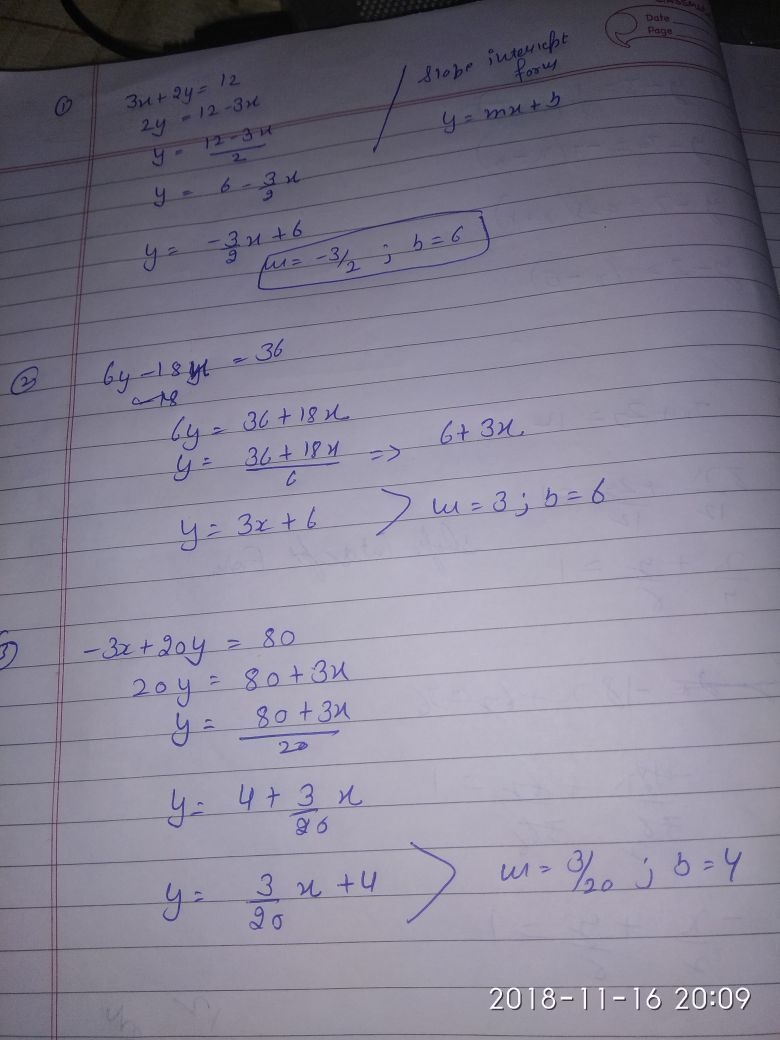 CLASSMATE
Date
Page
① 3x + 2y = 12
2y = 12 - 3x
y = 12 - 3x / 2
y = 6 - 3/2 x
y = -3/2 x + 6
m = -3/2 ; b = 6
/ Slope intercept
form
y = mx + b
② 6y - 18x = 36
6y = 36 + 18x
y = 36 + 18x / 6 => 6 + 3x
y = 3x + 6 > m = 3 ; b = 6
③ -3x + 20y = 80
20y = 80 + 3x
y = 80 + 3x / 20
y = 4 + 3/20 x
y = 3/20 x + 4 > m = 3/20 ; b = 4
2018-11-16 20:09